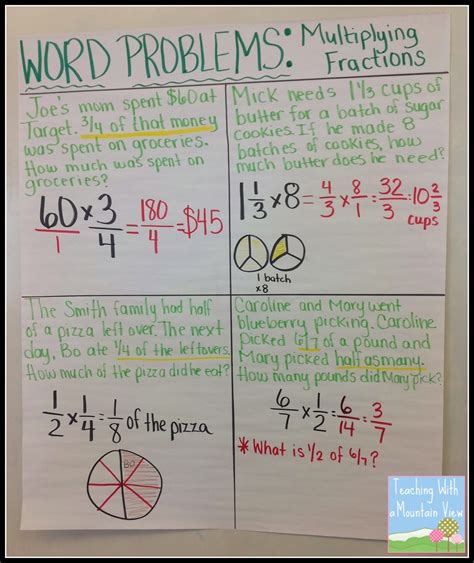 WORD PROBLEMS: Multiplying Fractions
Joe's mom spent $60 at
Target. 3/4 of that money
was spent on groceries.
How much was spent on
groceries?
60/1 × 3/4 = 180/4 = $45
Mick needs 1 1/3 cups of
butter for a batch of sugar
cookies. If he made 8
batches of cookies, how
much butter does he need?
1 1/3 × 8 = 4/3 × 8/1 = 32/3 = 10 2/3
cups
1 batch
×8
The Smith family had half
of a pizza left over. The next
day, Bo ate 1/4 of the leftovers.
How much of the pizza did he eat?
1/2 × 1/4 = 1/8 of the pizza
BO
Caroline and Mary went
blueberry picking. Caroline
picked 6/7 of a pound and
Mary picked half as many.
How many pounds did Mary pick?
6/7 × 1/2 = 6/14 = 3/7
* What is 1/2 of 6/7?
Teaching With
a Mountain View